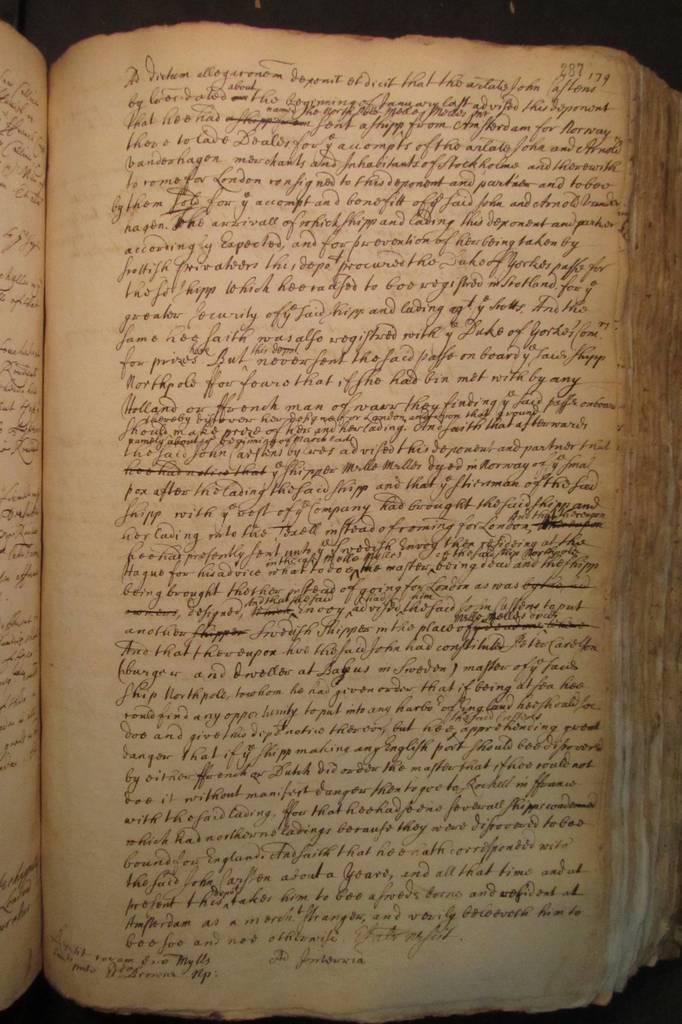 287 179
Ad dictum allegaconem deponit et dicit that the arlate John Castens
by lres dated about the beginning of January last advised this deponent
that hee had named the North Pole Melle Melles mr sent a shipp from Amsterdam for Norway
there to lade Deales for ye accompts of the arlate John and Arnold
Vanderhagen merchants and Inhabitants of Stockholme and therewith
to come for London consigned to this deponent and partner and to bee
by them sold for ye accompt and benefitt of ye said John and Arnold Vander
hagen. The arrivall of which shipp and lading this deponent and partner
accordingly Expected, and for prevention of her being taken by
Scottish privateers this depot procured the Duke of Yorkes passe for
the sd shipp which hee caused to bee registred in Scotland, for ye
greater security of ye said shipp and lading agt ye Scotts. And the
same hee saith was also registred with ye Duke of Yorkes Comrs
for prizes here. But this depot never sent the said passe on board ye said shipp
Northpole ffor feare that if she had bin met with by any
Holland or ffrench man of warr they finding ye said passe onboard
thereby discover her designed for London and upon that ground
should make prize of her and her lading. And saith that afterwards
namely about ye beginning of March last
the said John Castens by lres advised this deponent and partner that
hee had notice that ye shipper Melle Melles dyed in Norway of ye smal
pox after the lading the said shipp and that ye stiersman of the said
shipp with ye rest of ye Company had brought the said shipp and
her lading into the Texell instead of coming for London, And that thereupon
hee had presently sent unto ye Swedish Envoy then residing at the
Hague for his advice what to doe in the case Melle Melles the master of the said ship Northpole being dead and the shipp
being brought thether instead of going for London as was
designed, And that the said Envoy had advised him the said John Castens to put
another shipper Swedish shipper in the place of Melle Melles
And that thereupon hee the said John had constituted Peter Carelson
(burger and dweller at in Sweden) master of ye said
ship Northpole, to whom he had given order, that if being at sea hee
could find any opportunity to put into any harbor of England hee should soe
doe and give this dept notice thereof, but hee the said Castens apprehending great
danger that if ye shipp making any English port should bee discovered
by either ffrench or Dutch did order the master that if hee could not
doe it without manifest danger then to goe to Rochell in ffrance
with the said lading, ffor that hee had seene severall shipps condemned
which had northerne ladings because they were discovered to bee
bound for England. And saith that hee hath corresponded with
the said John Carsten about a yeare, and all that time and at
present this depot takes him to bee a swede borne and resident at
Amsterdam as a mercht stranger, and verily beleeveth him to
bee soe and not otherwise
Ad Interria